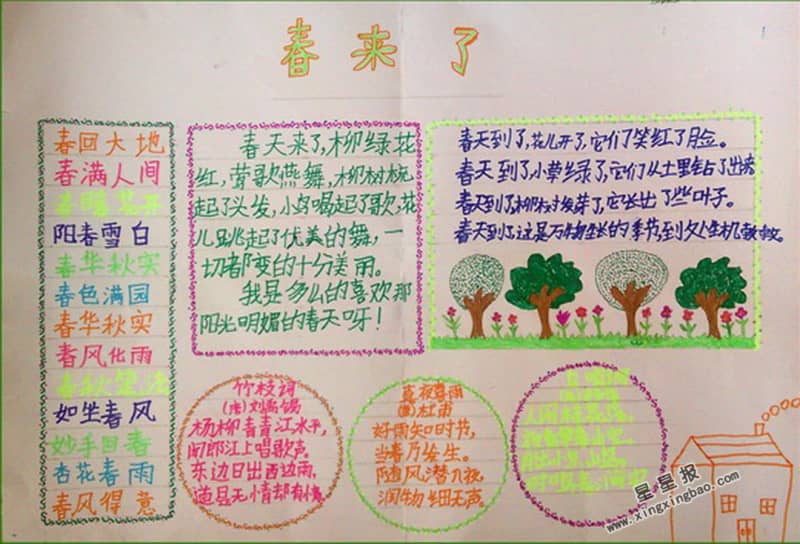 春来了
春回大地
春满人间
春暖花开
阳春雪白
春华秋实
春色满园
春华秋实
春风化雨
如坐春风
妙手回春
杏花春雨
春风得意
春天来了,柳绿花
红,莺歌燕舞,柳树梳
起了头发,小鸟唱起了歌,花
儿跳起了优美的舞,一
切都变的十分美丽。
我是多么的喜欢那
阳光明媚的春天呀!
春天到了,花儿开了,它们笑红了脸。
春天到了,小草绿了,它们从土里钻了出来
春天到了,柳树发芽了,它长出了些叶子。
春天到了,这是万物生长的季节,到处生机勃勃。
竹枝词
(唐)刘禹锡
杨柳青青江水平,
闻郎江上唱歌声。
东边日出西边雨,
道是无情却有情。
春夜喜雨
杜甫
好雨知时节,
当春乃发生。
随风潜入夜,
润物细无声。
星星报
www.xingxingbao.com